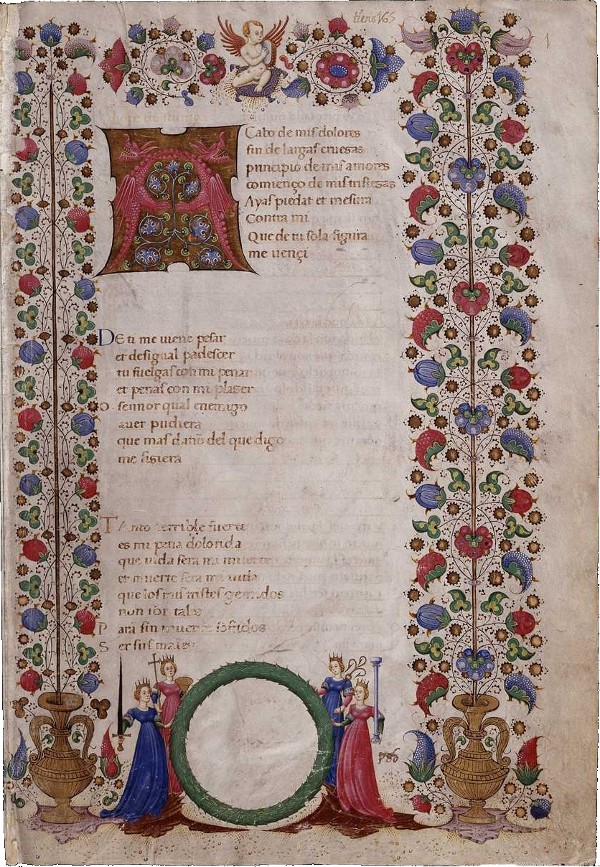 A Cabo de mis dolores
fin de largas cruesas
principio de mis amores
començo de mis tristesas
Ayas piedat et mesura
Contra mi
Que de tu sola figura
me vençi
DE ti me viene pesar
et desigual padescer
tu fuelgas con mi penar
et penas con mi plaser
O sennor qual enemigo
auer pudiera
que mas danno del que digo
me fisiera
TAnto terrible fuera
es mi pena dolorida
que vida sera mi muerte
et muerte sera mi vida
que los mis tristes gemidos
non tales
Para sin muerte sofridos
Ser sus males